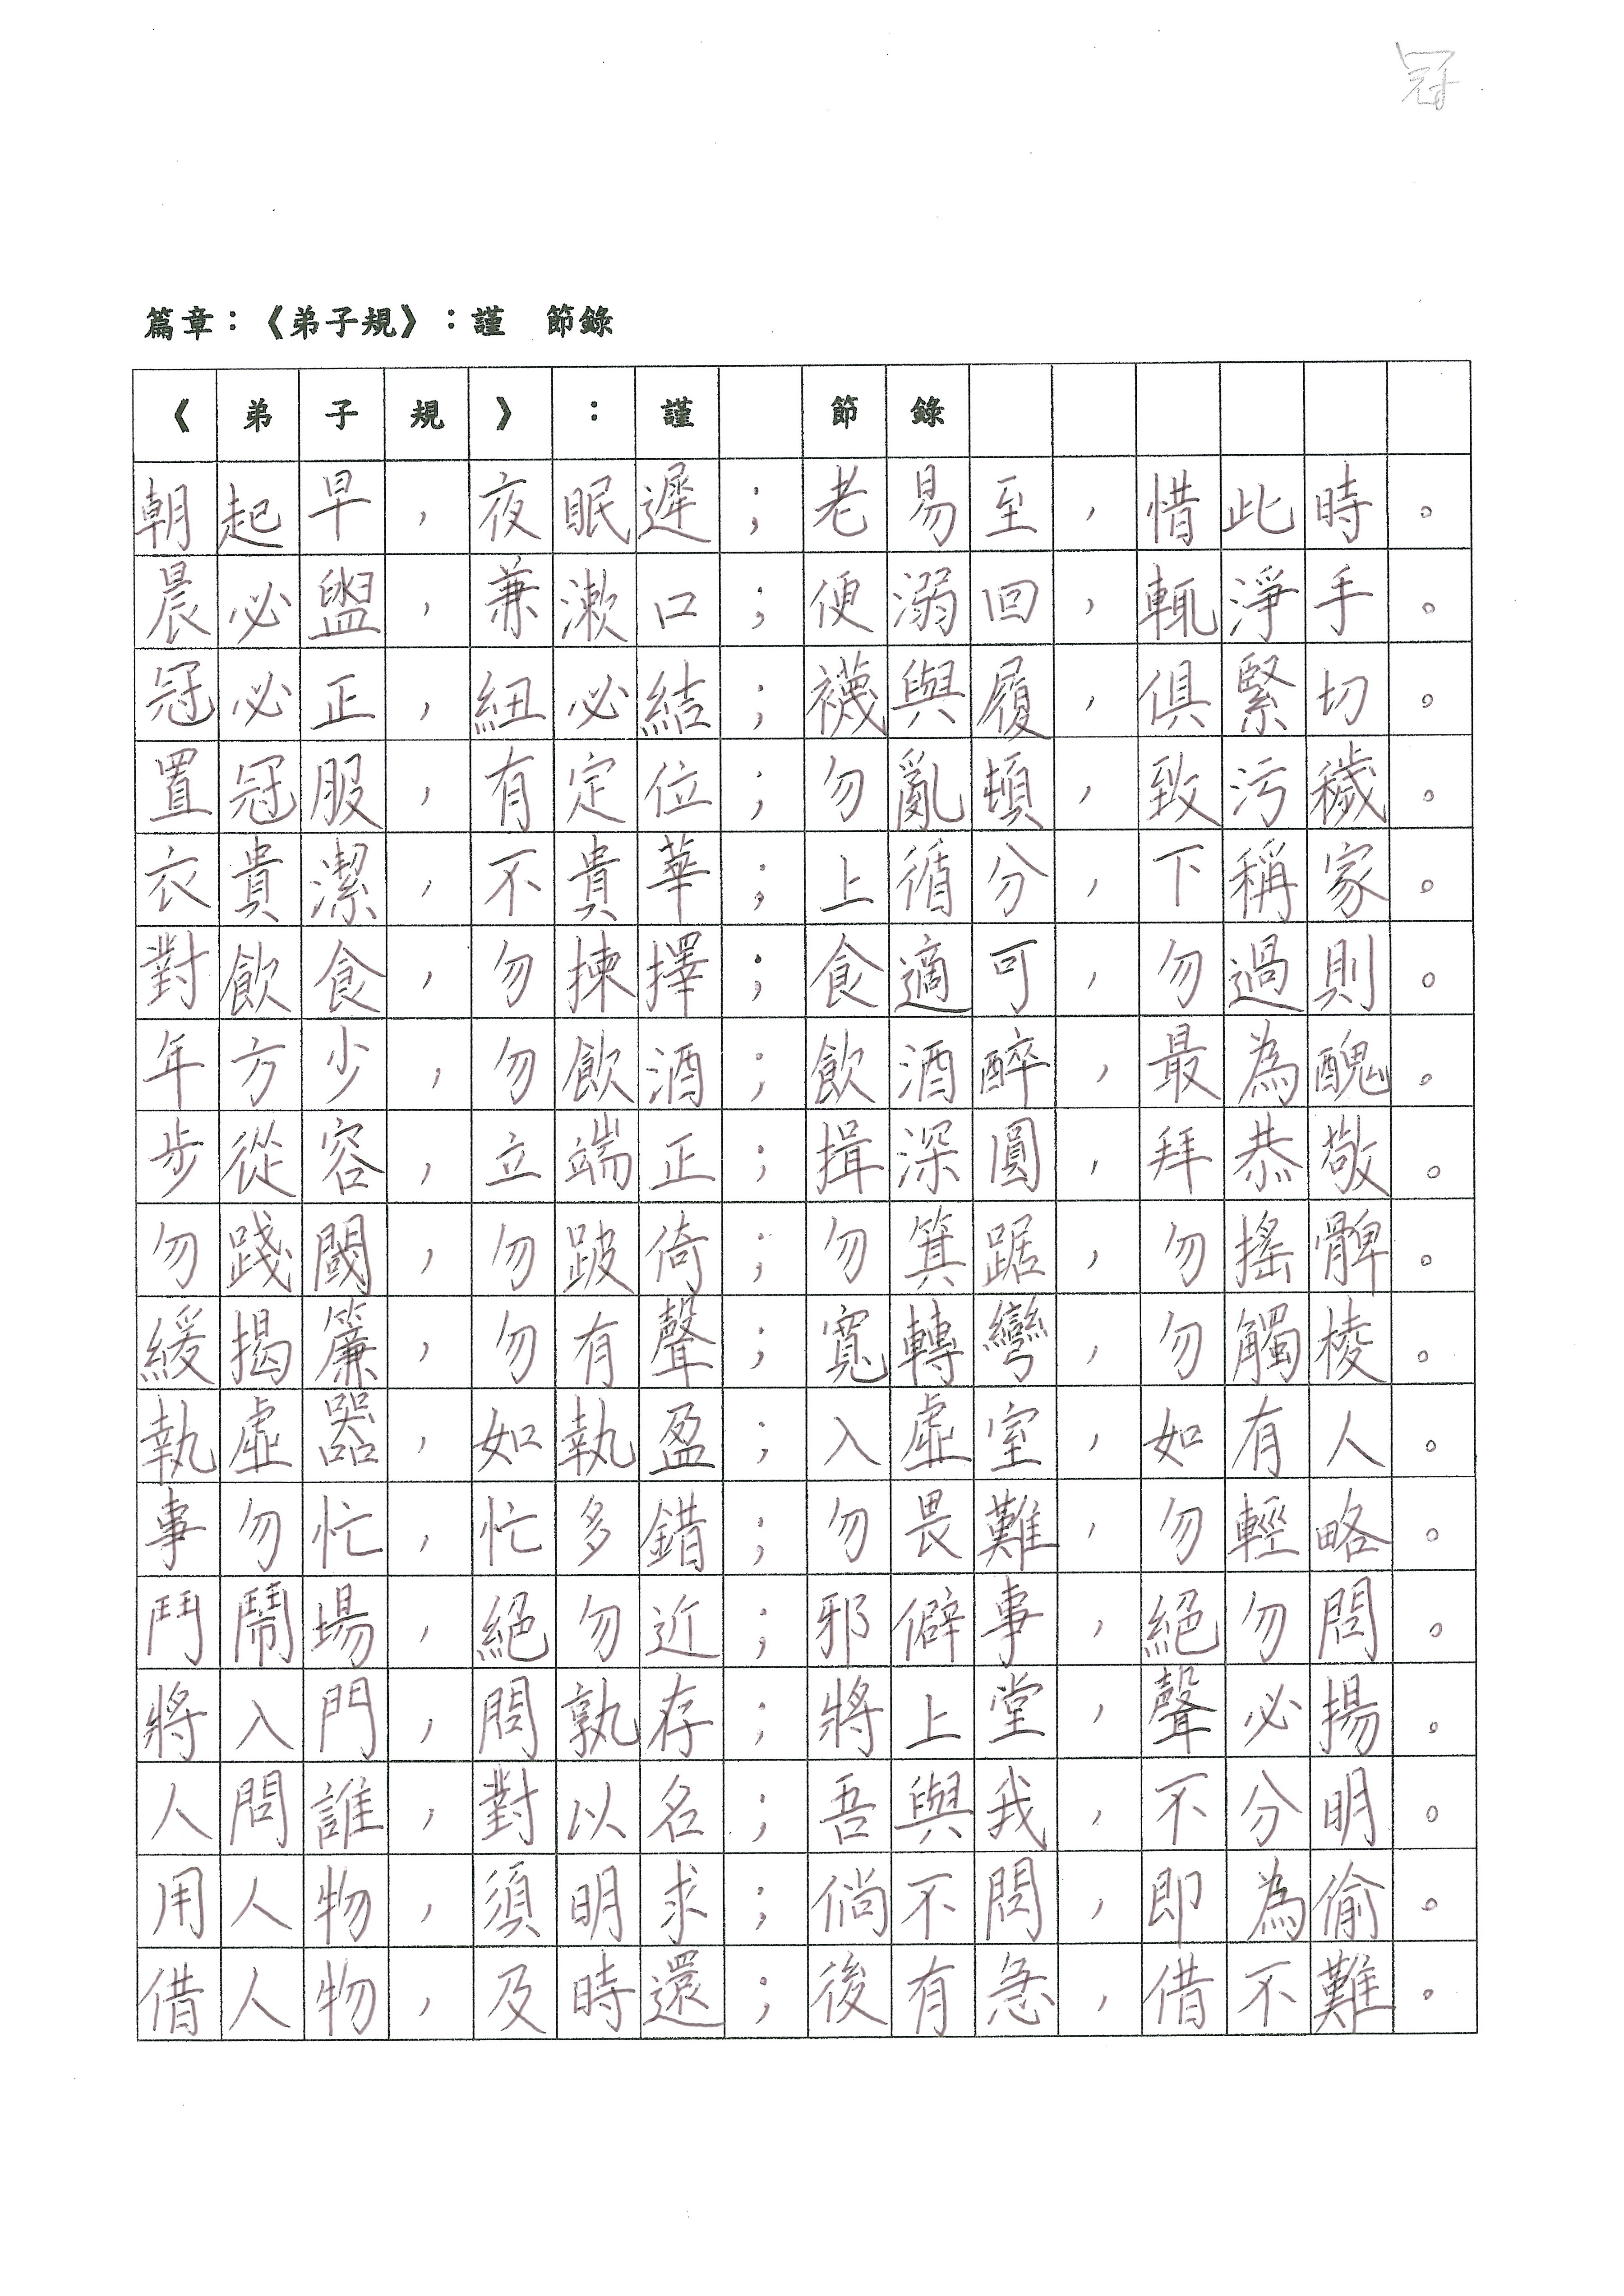 冠
篇章：《弟子規》：謹　節錄
《弟子規》：謹　節錄
朝起早，夜眠遲；老易至，惜此時。
晨必盥，兼漱口；便溺回，輒淨手。
冠必正，紐必結；襪與履，俱緊切。
置冠服，有定位；勿亂頓，致污穢。
衣貴潔，不貴華；上循分，下稱家。
對飲食，勿揀擇；食適可，勿過則。
年方少，勿飲酒；飲酒醉，最為醜。
步從容，立端正；揖深圓，拜恭敬。
勿踐閾，勿跛倚；勿箕踞，勿搖髀。
緩揭簾，勿有聲；寬轉彎，勿觸棱。
執虛器，如執盈；入虛室，如有人。
事勿忙，忙多錯；勿畏難，勿輕略。
鬥鬧場，絕勿近；邪僻事，絕勿問。
將入門，問孰存；將上堂，聲必揚。
人問誰，對以名；吾與我，不分明。
用人物，須明求；倘不問，即為偷。
借人物，及時還；後有急，借不難。